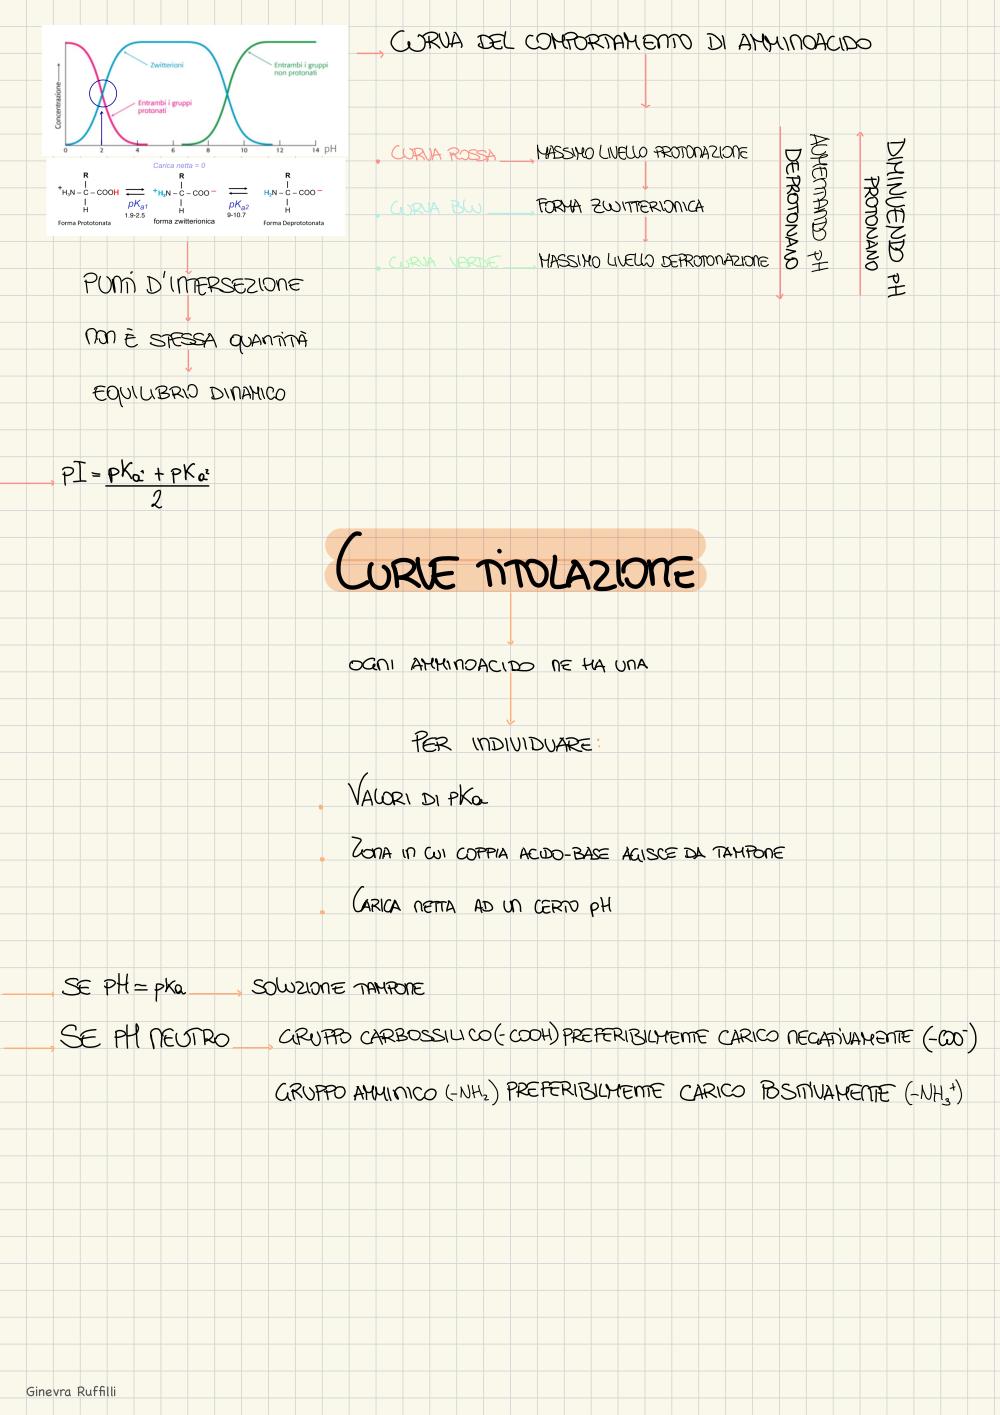 CURVA DEL COMPORTAMENTO DI AMMINOACIDO
Concentrazione
Zwitterioni
Entrambi i gruppi
non protonati
Entrambi i gruppi
protonati
0 2 4 6 8 10 12 14 pH
Carica netta = 0
R R R
⁺H₃N – C – COOH ⁺H₃N – C – COO⁻ H₂N – C – COO⁻
pKa1 pKa2
H H H
1.9-2.5 9-10.7
Forma Prototonata forma zwitterionica Forma Deprototonata
CURVA ROSSA MASSIMO LIVELLO PROTONAZIONE
CURVA BLU FORMA ZWITTERIONICA
CURVA VERDE MASSIMO LIVELLO DEPROTONAZIONE
AUMENTANDO pH
DEPROTONANO
DIMINUENDO pH
PROTONANO
PUNTI D'INTERSEZIONE
NON È STESSA QUANTITÀ
EQUILIBRIO DINAMICO
pI = pKa¹ + pKa²
2
CURVE TITOLAZIONE
OGNI AMMINOACIDO NE HA UNA
PER INDIVIDUARE:
VALORI DI pKa
ZONA IN CUI COPPIA ACIDO-BASE AGISCE DA TAMPONE
CARICA NETTA AD UN CERTO pH
SE PH = pKa SOLUZIONE TAMPONE
SE PH NEUTRO GRUPPO CARBOSSILICO (-COOH) PREFERIBILMENTE CARICO NEGATIVAMENTE (-COO⁻)
GRUPPO AMMINICO (-NH₂) PREFERIBILMENTE CARICO POSITIVAMENTE (-NH₃⁺)
Ginevra Ruffilli